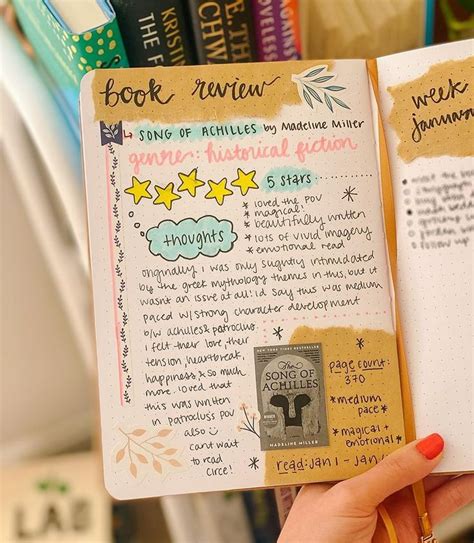 KRISTIN
THE FOX
THE
book review
SONG OF ACHILLES by Madeline Miller
genre: historical fiction
5 stars
* loved the POV
* magical!
* beautifully written
* lots of vivid imagery
* emotional read
thoughts
originally i was only slightly intimidated
by the greek mythology themes in this, but it
wasnt an issue at all! i'd say this was medium
paced w/ strong character development
b/w achilles & patroclus.
i felt their love, their
tension, heartbreak,
happiness & so much
more. loved that
this was written
in patroclus's pov
also
cant wait
to read
Circe!
NEW YORK TIMES BESTSELLER
The
SONG OF
ACHILLES
MADELINE MILLER
page count:
370
*medium
pace*
*magical +
emotional*
read: jan 1 - jan
week
januar